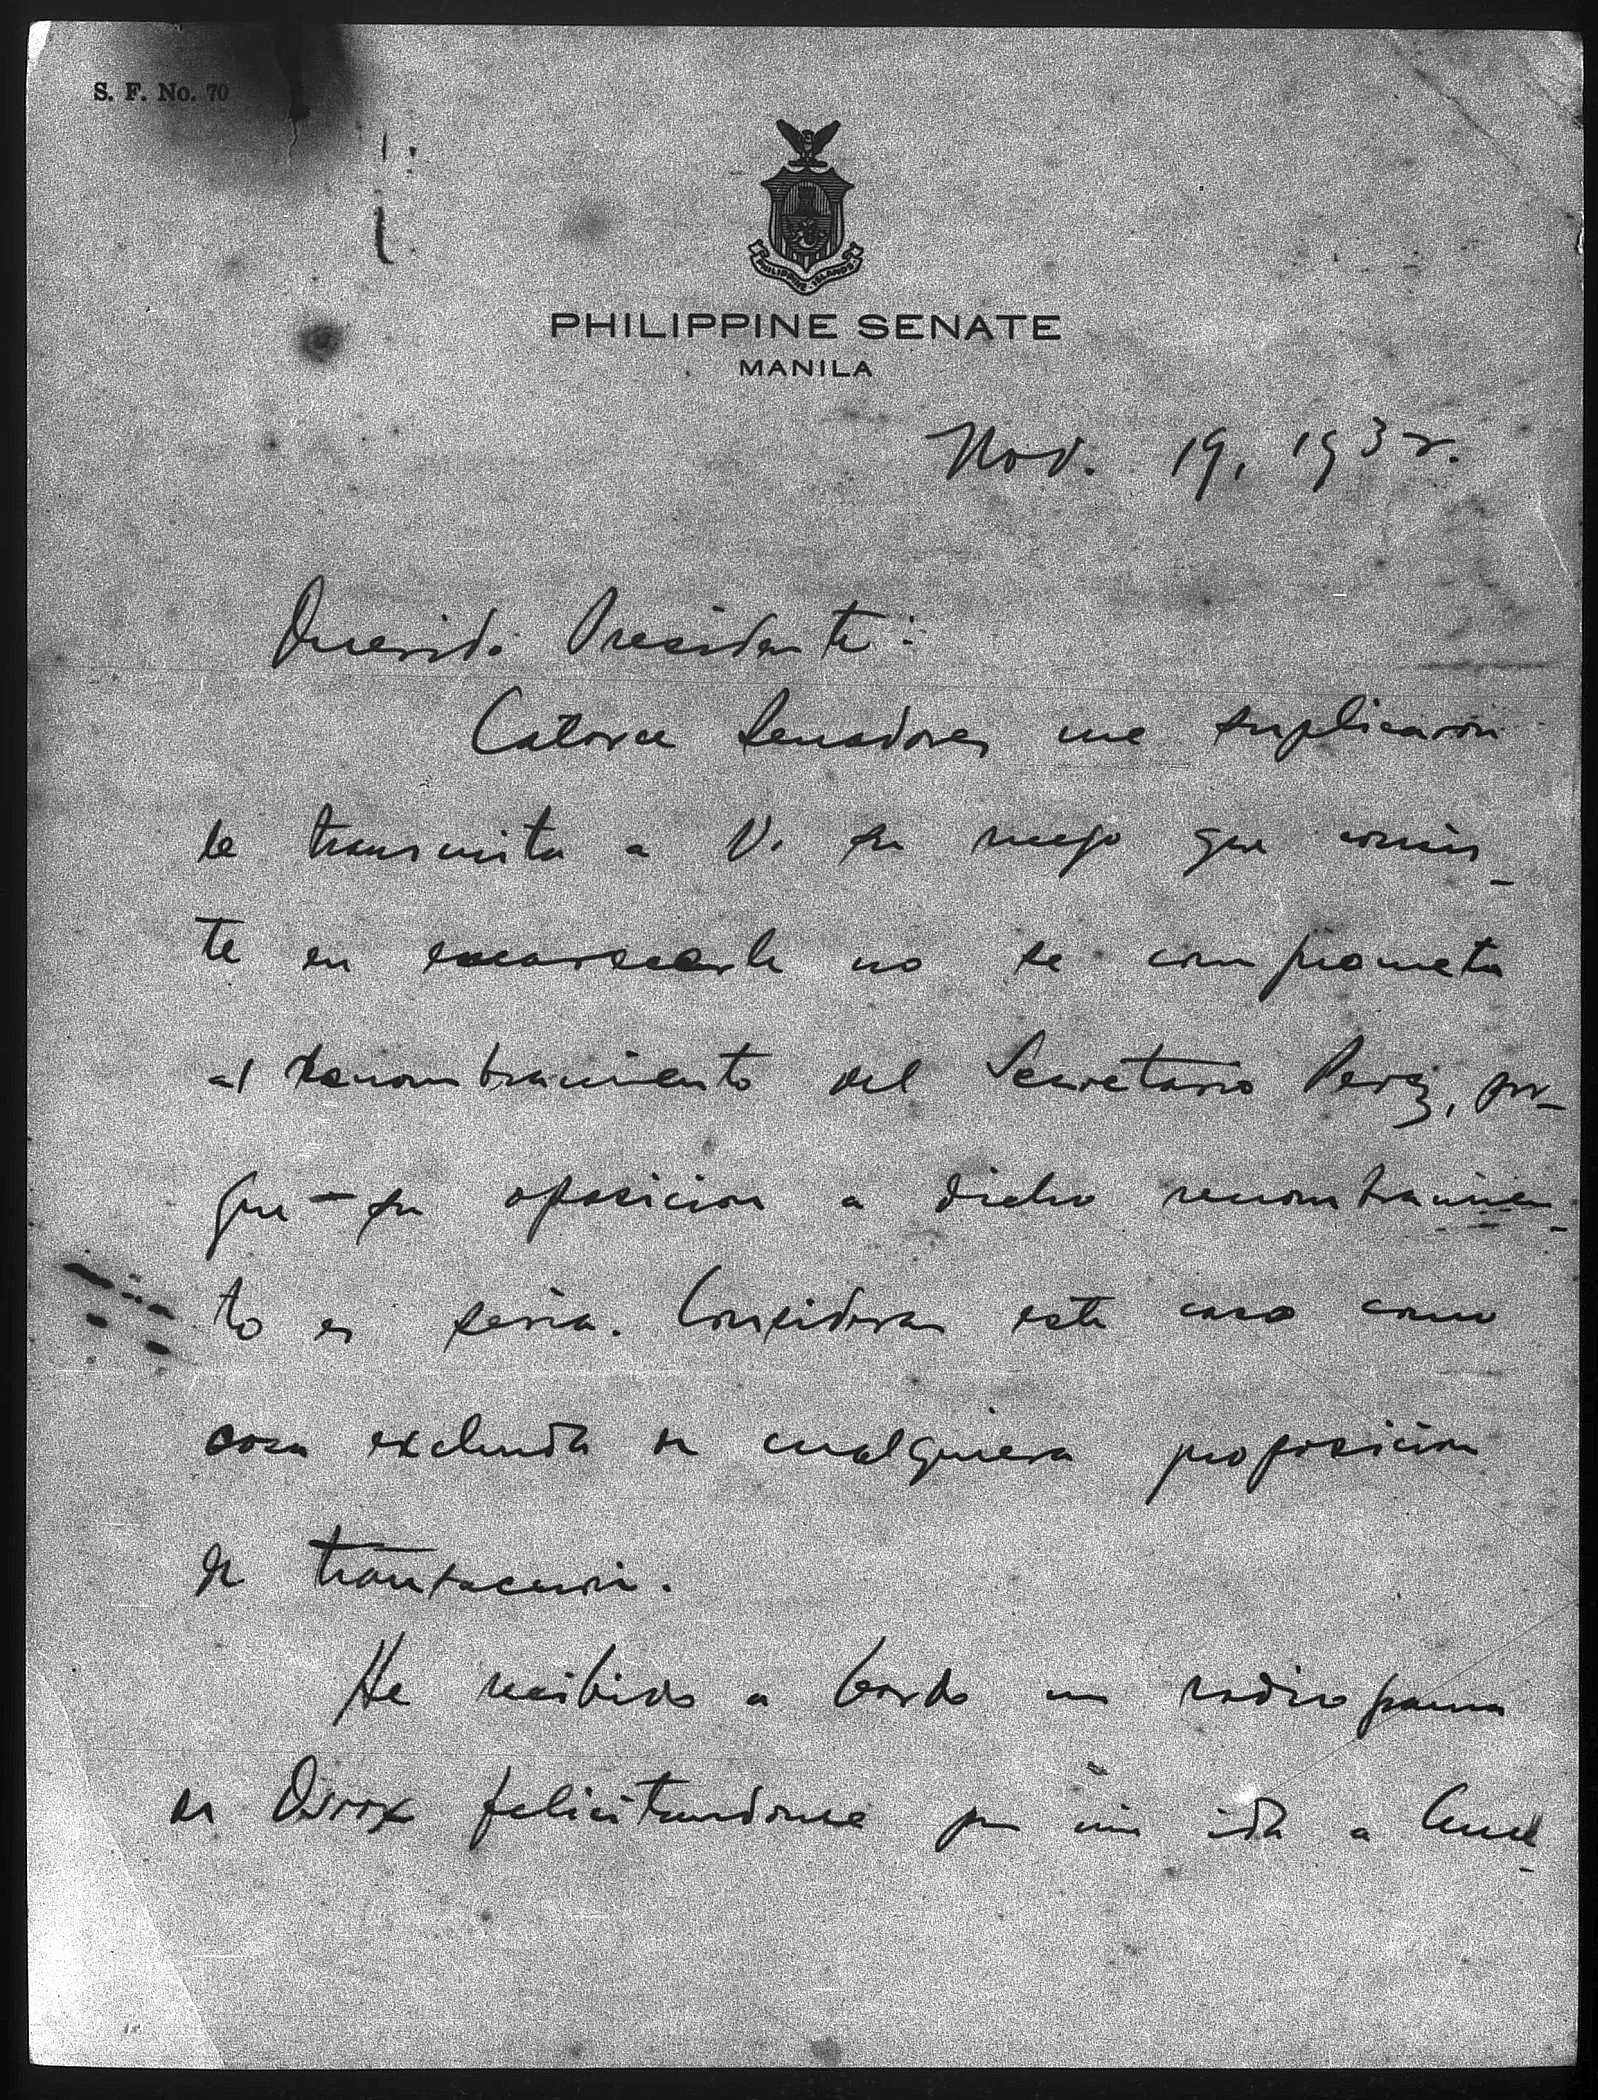 S. F. No. 70
PHILIPPINE ISLANDS
PHILIPPINE SENATE
MANILA
Nov. 19, 1932.
Querido Presidente:
Catorce Senadores me suplicaron
le transmita a V. su ruego que consis-
te en encarecerle no se comprometa
al renombramiento del Secretario Perez, por-
que su oposicion a dicho renombramien-
to es seria. Consideran este caso como
cosa excluida de cualquiera proposicion
de transaccion.
He recibido a bordo un radiograma
de Osrox felicitandome por mi ida a